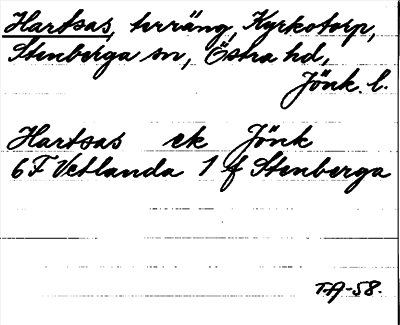 Hartsas, terräng, Kyrkotorp,
Stenberga sn, Östra hd,
Jönk. l.
Hartsas ek Jönk
6F Vetlanda 1 f Stenberga
T.A-58.